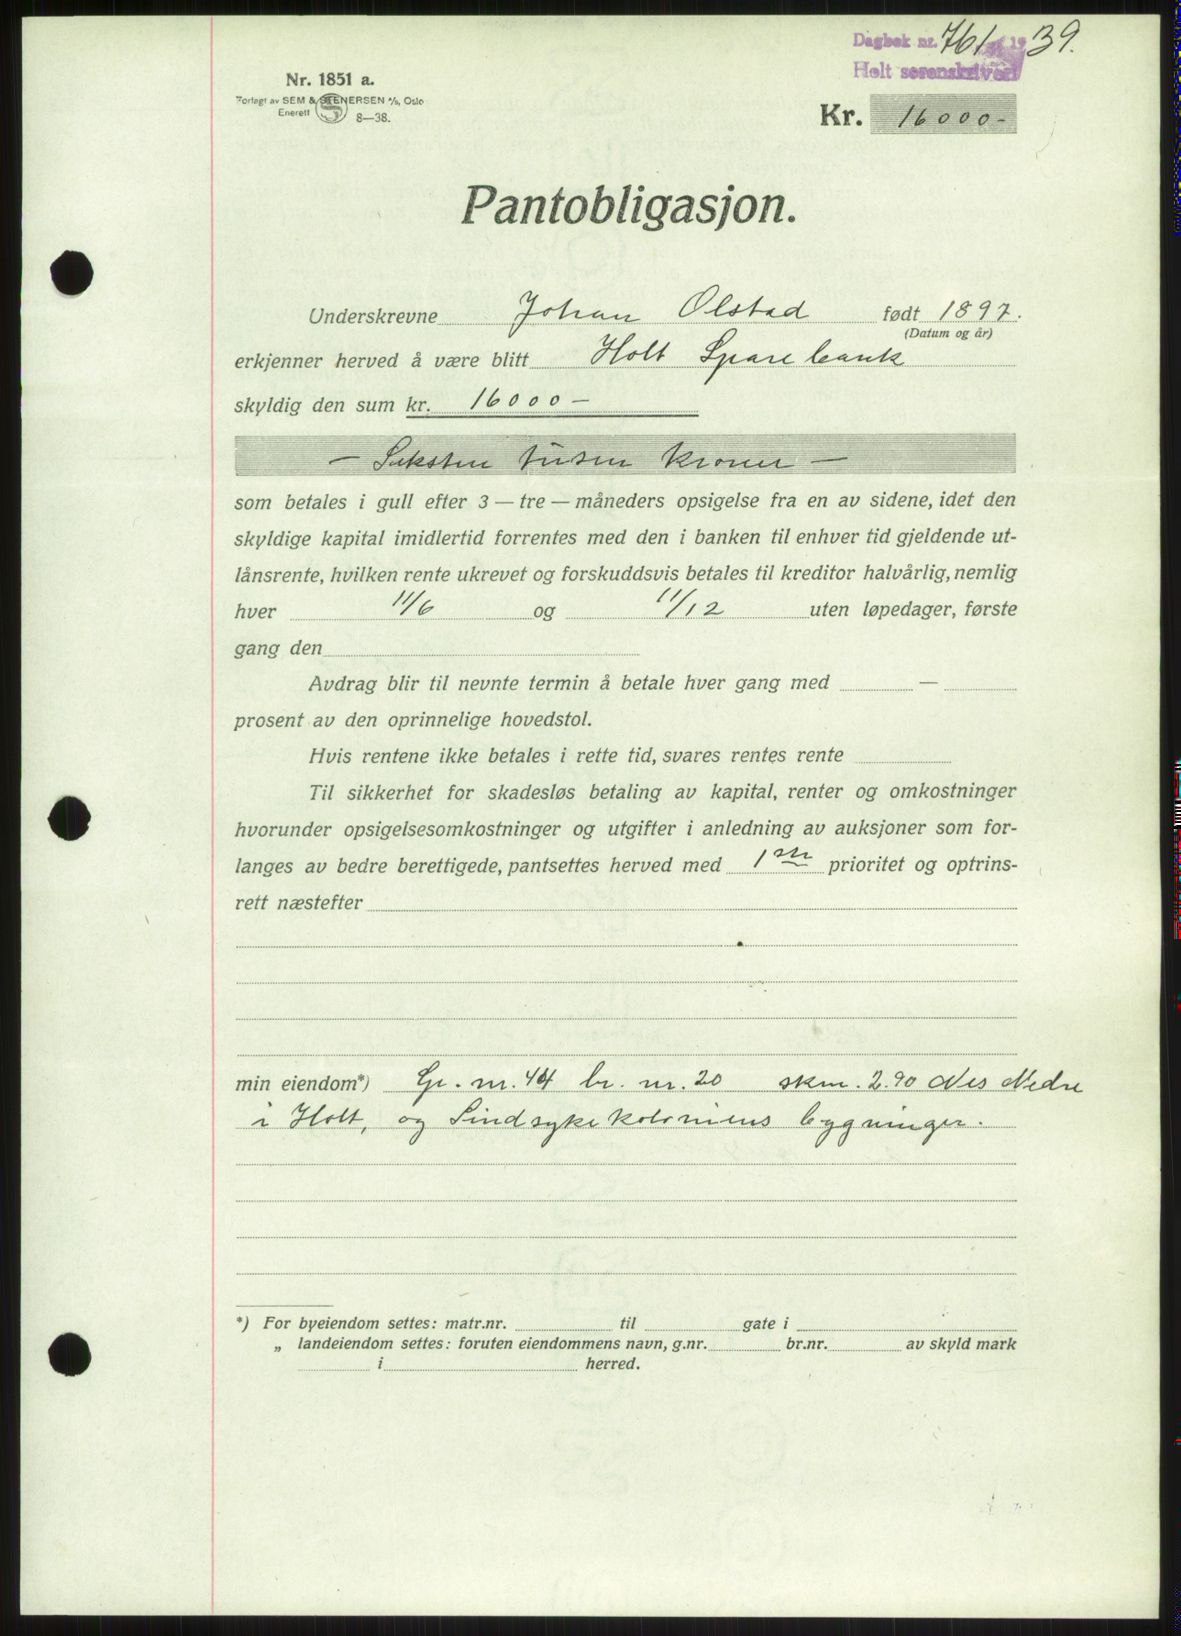 Dagbok nr. 761 19 39.
Holt sorenskriveri
Nr. 1851 a.
Forlagt av SEM & STENERSEN A/S, Oslo
Enerett 8—38.
Kr. 16000-
Pantobligasjon.
Underskrevne Johan Olstad født 1897.
(Datum og år)
erkjenner herved å være blitt Holt Sparebank
skyldig den sum kr. 16000 —
— Seksten tusen kroner —
som betales i gull efter 3 — tre — måneders opsigelse fra en av sidene, idet den
skyldige kapital imidlertid forrentes med den i banken til enhver tid gjeldende ut-
lånsrente, hvilken rente ukrevet og forskuddsvis betales til kreditor halvårlig, nemlig
hver 11/6 og 11/12 uten løpedager, første
gang den
Avdrag blir til nevnte termin å betale hver gang med —
prosent av den oprinnelige hovedstol.
Hvis rentene ikke betales i rette tid, svares rentes rente
Til sikkerhet for skadesløs betaling av kapital, renter og omkostninger
hvorunder opsigelsesomkostninger og utgifter i anledning av auksjoner som for-
langes av bedre berettigede, pantsettes herved med 1ste prioritet og optrins-
rett næstefter
min eiendom*) Gr. nr. 44 br. nr. 20 skm. 2.90 Nes Nedre
i Holt, og Sindsykekoloniens bygninger.
*) For byeiendom settes: matr.nr. til gate i
„ landeiendom settes: foruten eiendommens navn, g.nr. br.nr. av skyld mark
i herred.